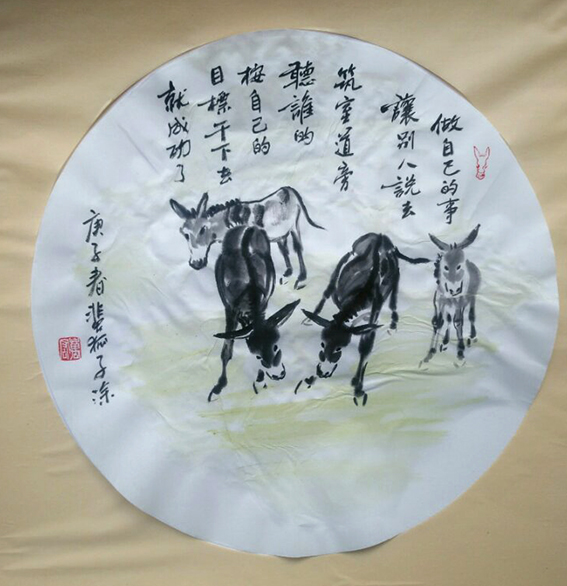 做自己的事
讓别人說去
筑室道旁
聽誰的
按自己的
目標干下去
就成功了
庚子春